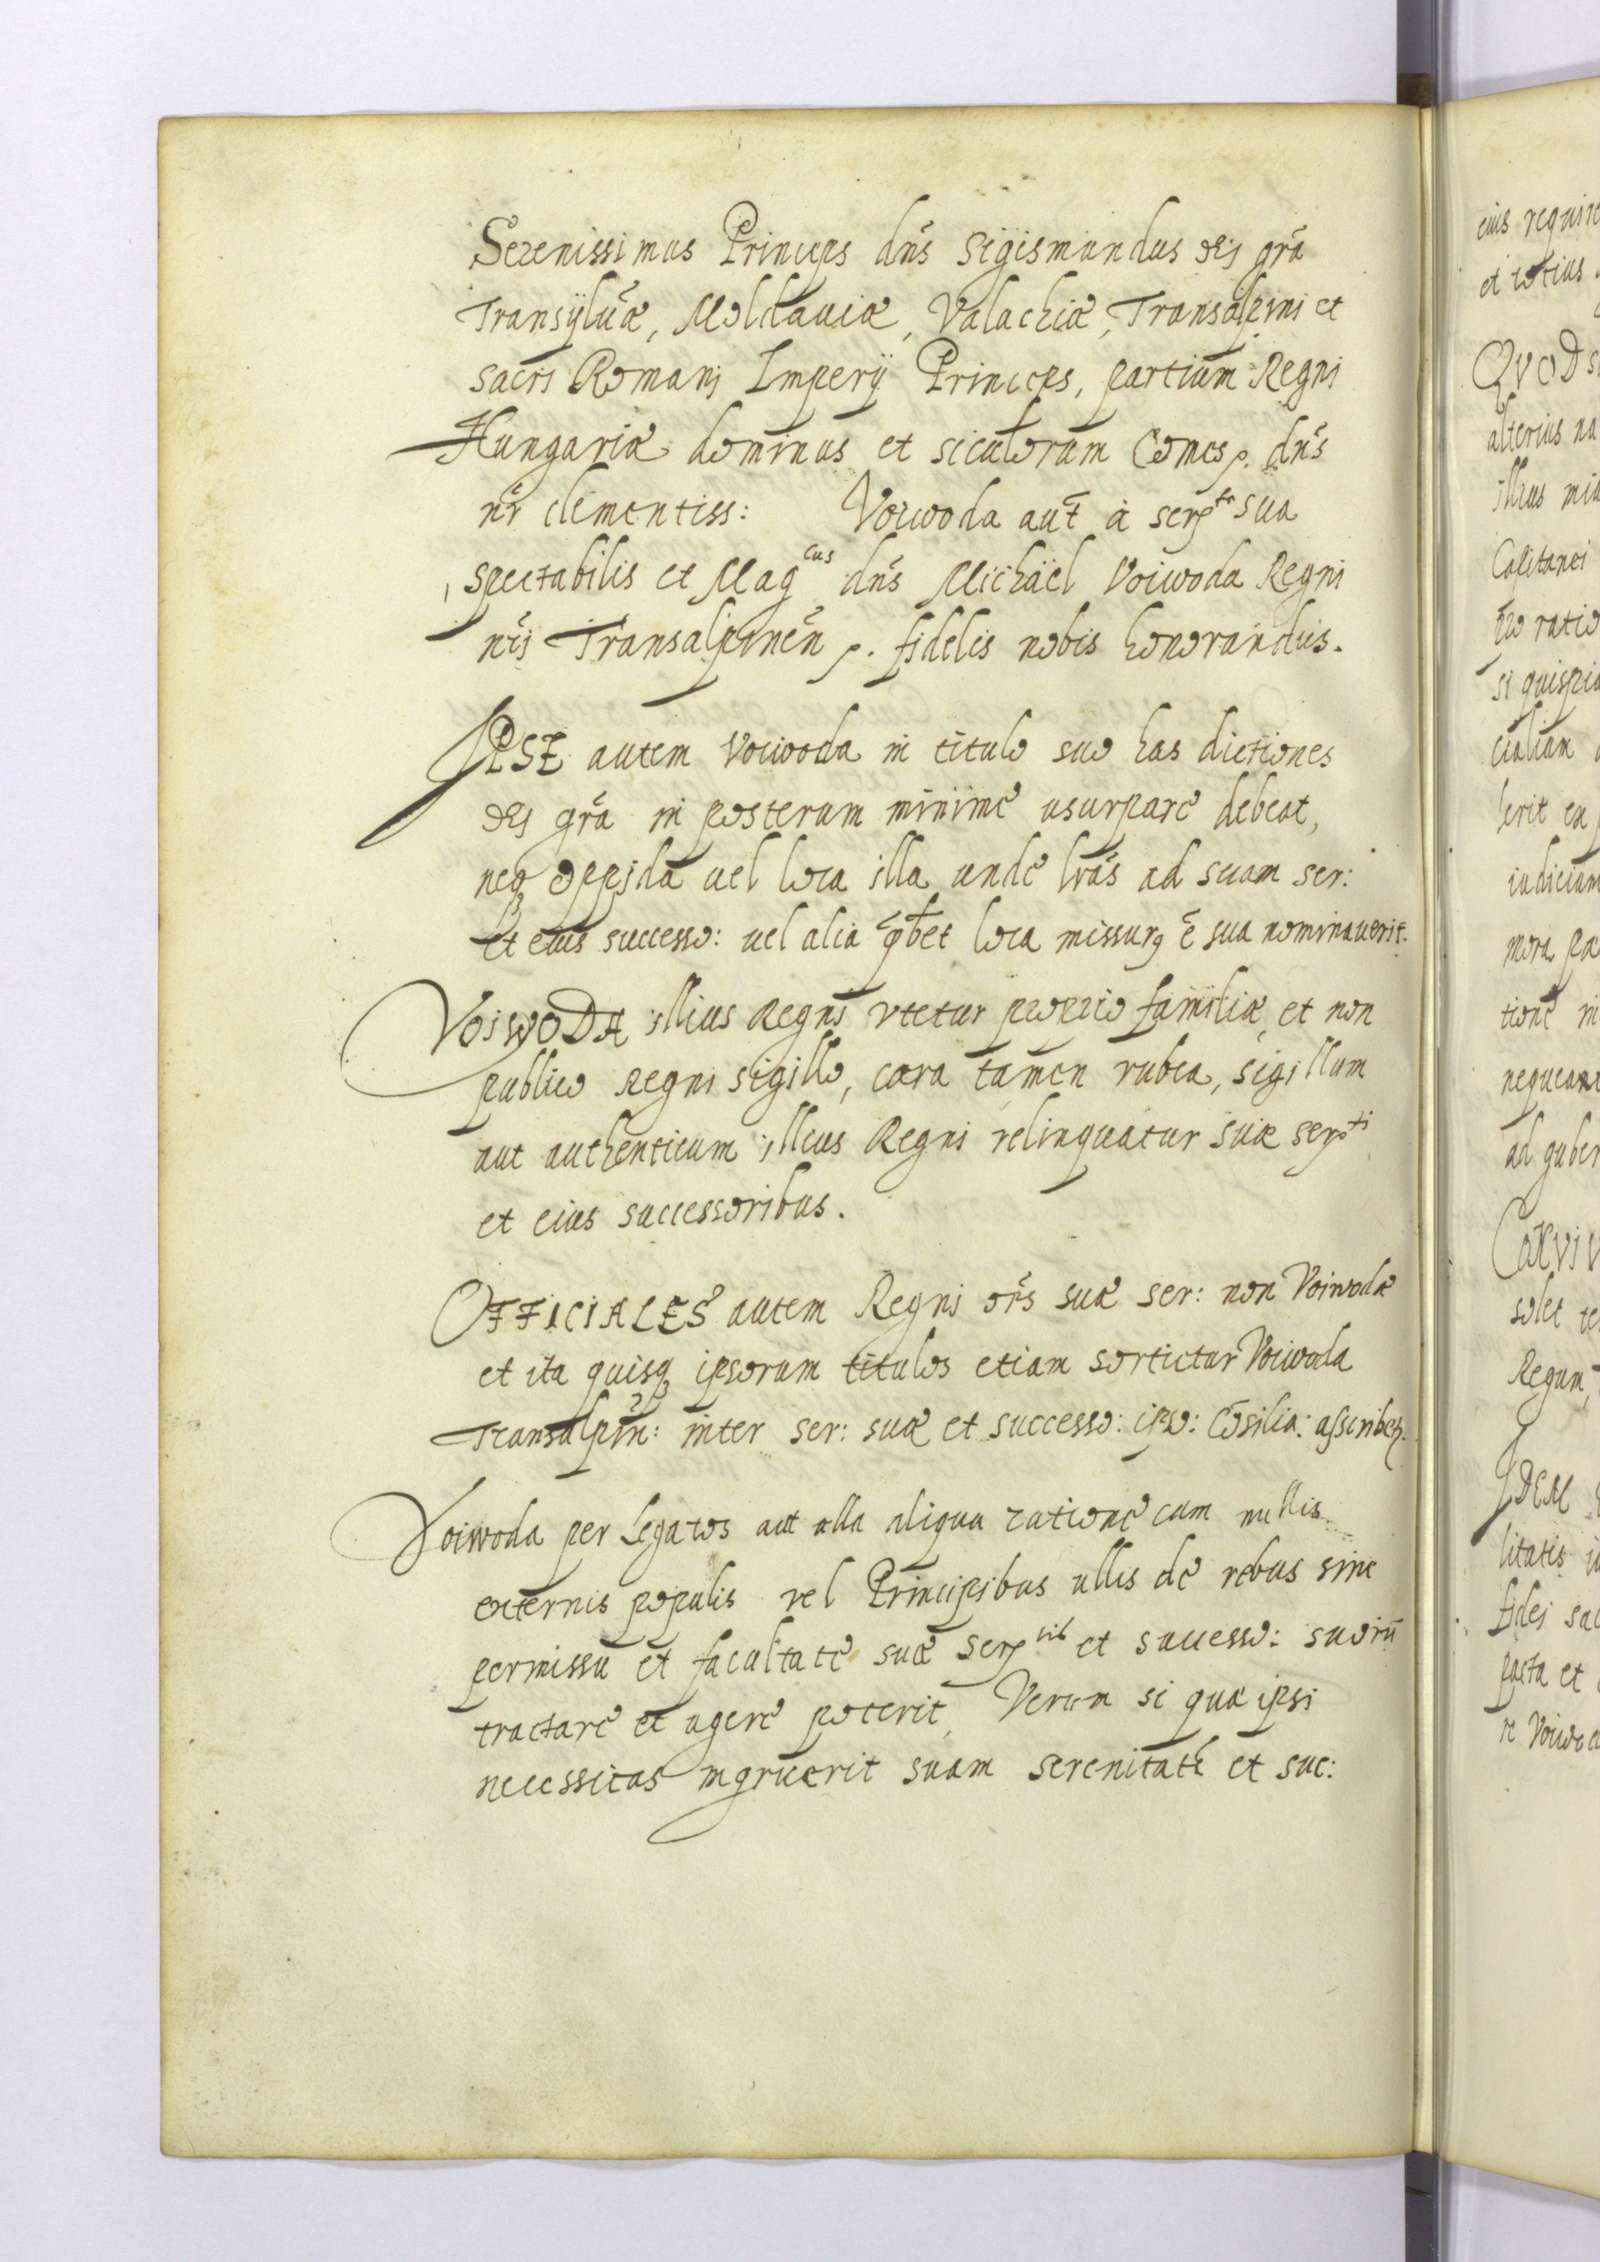 Serenissimus Princeps dn̄s Sigismundus dei gr̄a
Transyluāe, Moldauiae, Valachiae, Transalpini et
sacri Romani Imperij Princeps, partium Regni
Hungariae dominus et siculorum Comes p. dn̄s
nr̄ clementiss: Voiwoda aut̄ à serte sua
spectabilis et Magcus dn̄s Michäel Voiwoda Regni
nr̄i Transalpinen̄ p. fidelis nobis honorandus.
IPSE autem Voiwoda in titulo suo has dictiones
dei gr̄a in posterum minimè usurpare debeat,
neq oppida uel loca illa undè lrās ad suam ser:
et eius successo: uel alia loca missurq ē sua nominauerit.
VOIWODA illius Regni vtetur proprio familiae, et non
publico Regni sigillo, caera tamen rubea, sigillum
aut authenticum illius Regni relinquatur suae serti
et eius successoribus.
OFFICIALES autem Regni oēs suae ser: non Voiwodae
et ita quisq ipsorum titulos etiam sortietur Voiwoda
Transalpin: inter ser: suae et successo: ipso: Cōsilia: asscribetz.
Voiwoda per Legatos aut ulla aliqua ratione cum nullis
externis populis vel Principibus ullis de rebus sine
permissu et facultate suae sertis et successo: suorū
tractare et agere poterit, Verum si quae ipsi
necessitas ingruerit suam serenitatē et suc:
eius requir
et totius
QVOD s
alterius na
illius mi
Capitanei
pro ratio
si quispia
cialium
lerit ex
iudicium
mora pa
tione in
nequeant
ad guber
solet te
Regum,
IDEM
litatis
fidei sac
pacta et
Voiwo